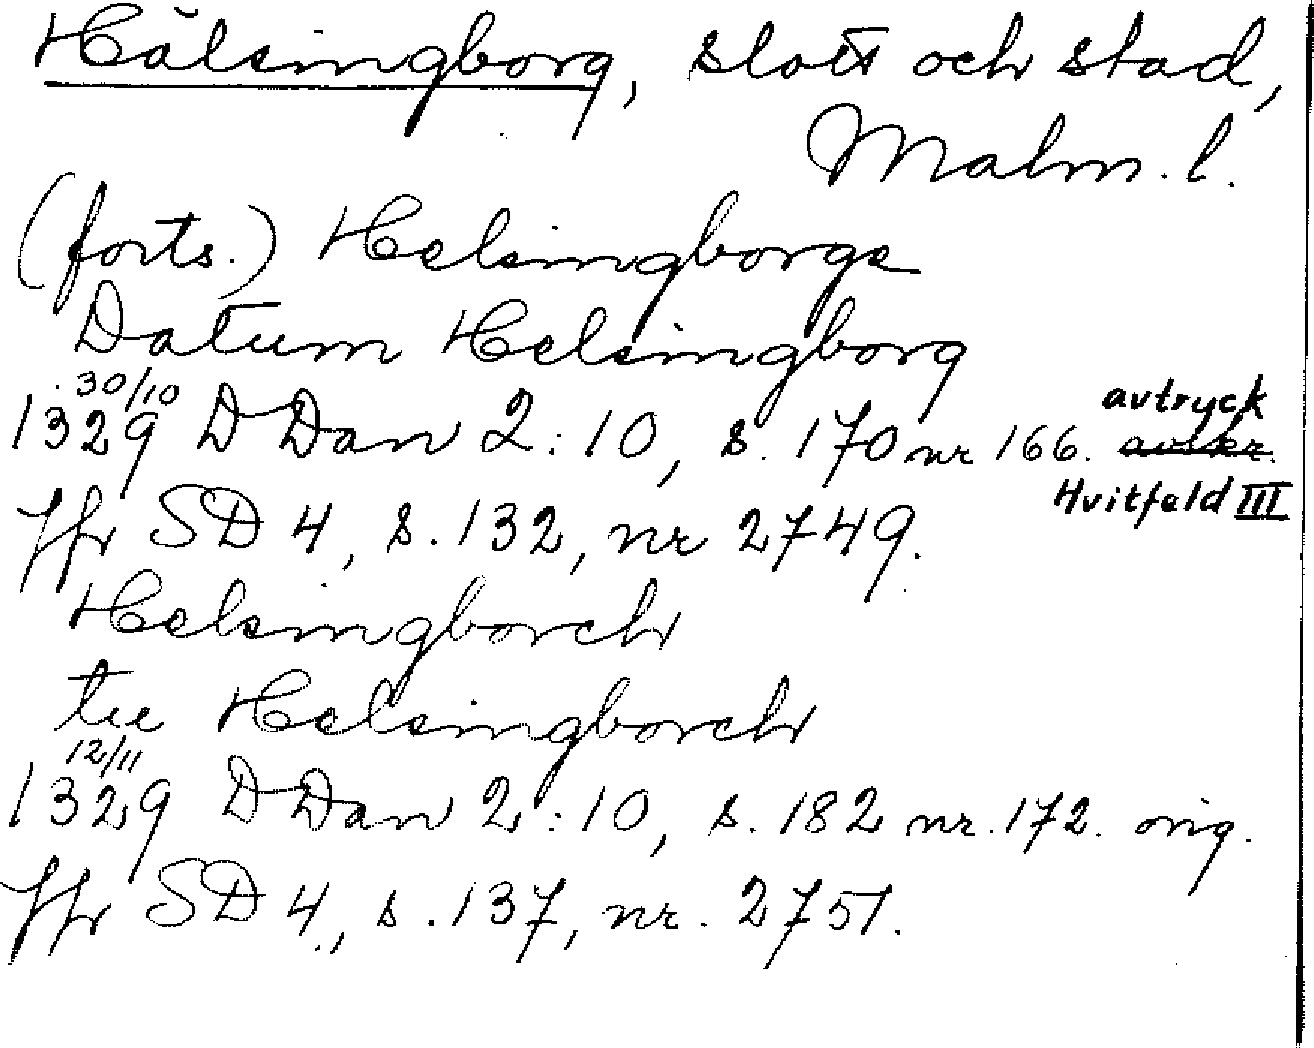 Hälsingborg, slott och stad,
Malm. l.
(forts.) Helsingborgs
Datum Helsingborg
30/10
1329 DDan 2:10, s. 170 nr 166. avtryck avskr.
Hvitfeld III
Jfr SD 4, s. 132, nr 2749.
Helsingborch
til Helsingborch
12/11
1329 DDan 2:10, s. 182 nr. 172. orig.
Jfr SD 4., s. 137, nr. 2751.